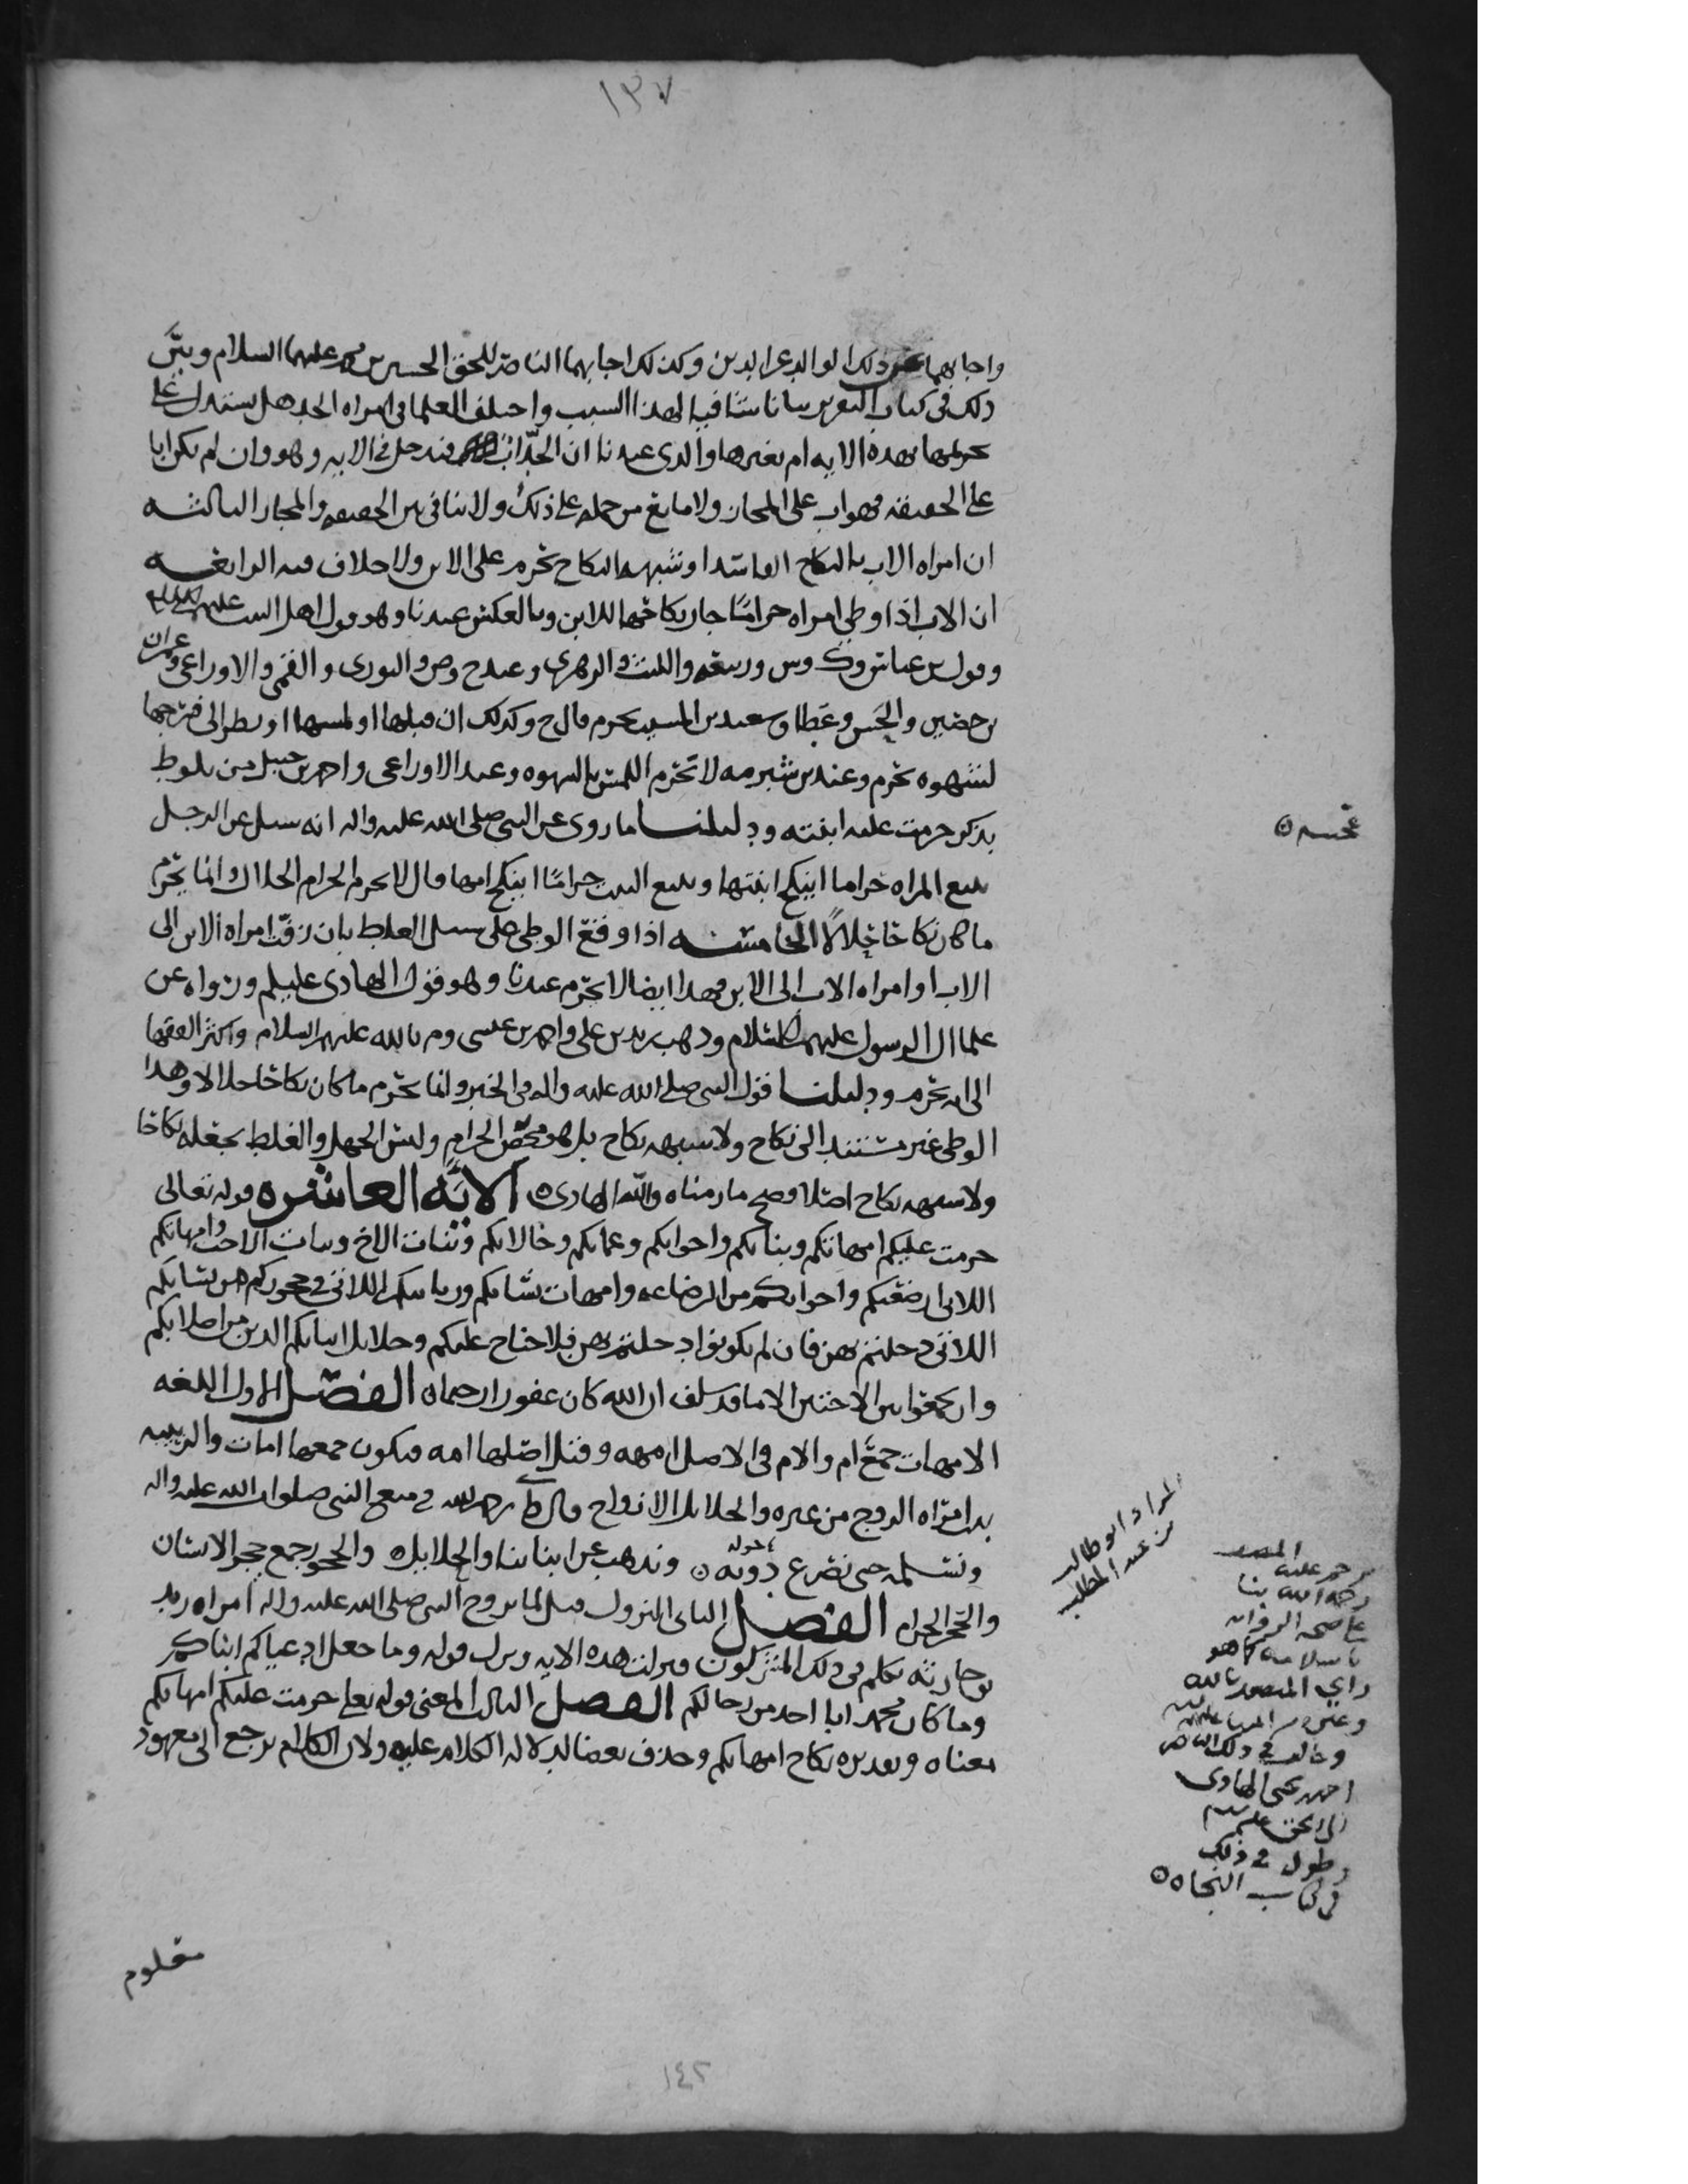 ١٣٧
واجابهما عن ذلك الوالد عز الدين وكذلك اجابهما الناصر للحق الحسين بن محمد عليهما السلام وبيّن
ذلك في كتاب التقرير بيانا شافيا لهذا السبب واختلف العلما في امراه الجد هل يستدل على
تحريمها بهذه الايه ام بغيرها والذي عندنا ان الجدّ اب فتدخل في الايه وهو وان لم يكن ابا
على الحقيقه فهو اب على المجاز ولا مانع من حمله على ذلك ولا تنافي بين الحقيقه والمجاز الثالثه
ان امراه الاب بالنكاح الفاسد او شبهه النكاح تحرم على الابن ولا خلاف فيه الرابعه
ان الاب اذا وطي امراه حرامًا جاز نكاحها للابن وبالعكس عندنا وهو قول اهل البيت عليهم السلم
وقول بن عباس وك وس وربيعه والليث والزهري وعند ح وص والثوري والقمي والاوزاعي وعمران
بن حصين والحسن وعطا وسعيد بن المسيب تحرم قال ح وكذلك ان قبلها او لمسها او نظر الى فرجها
لشهوه تحرم وعند بن شبرمه لا تحرم اللمس بالشهوه وعند الاوزاعي واحمد بن حنبل من تلوط
بذكر حرمت عليه ابنته ودليلنا ما روي عن النبي صلى الله عليه واله انه سيل عن الرجل
يتبع المراه حراما اينكح ابنتها ويتبع البنت حرامًا اينكح امها قال لا يحرم الحرام الحلال وانما يحرم
ما كان نكاحا حلالًا الخامسه اذا وقع الوطي على سبيل الغلط بان زفّت امراه الابن الى
الاب او امراه الاب الى الابن فهذا ايضا لا تحرم عندنا وهو قول الهادي عليلم ورواه عن
علما ال الرسول عليهم السلام وذهب زيد بن علي واحمد بن عيسى وم بالله عليهم السلام واكثر الفقها
الى انه تحرم ودليلنا قول النبي صلى الله عليه واله في الخبر وانما يحرم ما كان نكاحا حلالا وهذا
الوطي غير مستند الى نكاح ولا شبهه نكاح بل هو محض الحرام وليس الجهل والغلط يجعله نكاحا
ولا شبهه نكاح اصلا وصح ما رمناه والله الهادي ه الايَه العاشره قوله تعالى
حرمت عليكم امهاتكم وبناتكم واخواتكم وعماتكم وخالاتكم وبنات الاخ وبنات الاخت وامهاتكم
اللاتي ارضعنكم واخواتكم من الرضاعه وامهات نسائكم وربائبكم اللاتي في حجوركم من نسائكم
اللاتي دخلتم بهن فان لم تكونوا دخلتم بهن فلا جناح عليكم وحلائل ابنائكم الذين من اصلابكم
وان تجمعوا بين الاختين الا ما قد سلف ان الله كان غفورا رحيما ه الفصل الاول اللغه
الامهات جمع ام والام في الاصل امهه وقيل اصلها امه فيكون جمعها امات والربيبه
بنت امراه الزوج من غيره والحلايل الازواج قال ط رحمه الله في منع النبي صلوات الله عليه واله
ونسلمه حتى نصرع دونه ه ونذهب عن ابنائنا والحلايل ه والحجور جمع حجر الانسان
حوله
والحجر الحرام الفصل الثاني النزول قيل لما تزوج النبي صلى الله عليه واله امراه زيد
بن حارثه تكلم في ذلك المشركون فنزلت هذه الايه ونزل قوله وما جعل ادعياكم ابناكم
وما كان محمد ابا احد من رجالكم الفصل الثالث المعنى قوله تعالى حرمت عليكم امهاتكم
معناه وتقديره نكاح امهاتكم وحذف بعضا لدلاله الكلام عليه ولان الكلام يرجع الى معهود
معلوم
المراد ابو طالب
بن عبد المطلب
رحمه الله بنا
على صحه الروايه
باسلامه كما هو
راي المنصور بالله
وغيره من
وخالف في ذلك الناصر
احمد بن يحيى الهادي
الى الحق عليهم السلم
وطول في ذلك
في كتاب النجاه ه
١٤٢